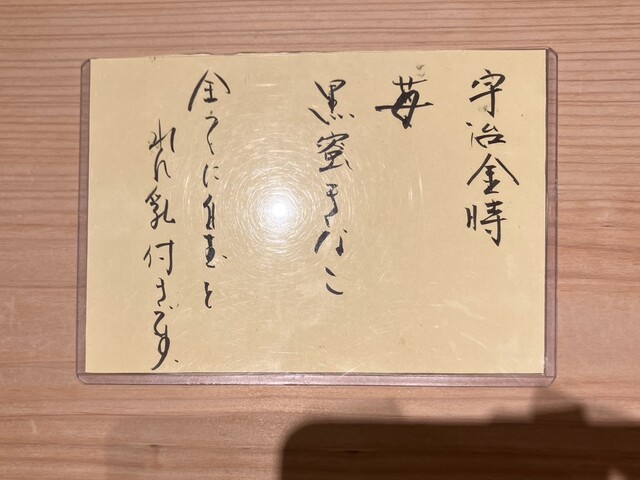 宇治金時
苺
黒蜜きなこ
全てに白玉と
れん乳付きです。